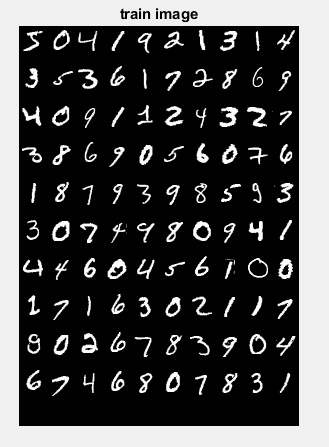 train image
5 0 4 1 9 2 1 3 1 4
3 5 3 6 1 7 2 8 6 9
4 0 9 1 1 2 4 3 2 7
3 8 6 9 0 5 6 0 7 6
1 8 7 9 3 9 8 5 9 3
3 0 7 4 9 8 0 9 4 1
4 4 6 0 4 5 6 1 0 0
1 7 1 6 3 0 2 1 1 7
8 0 2 6 7 8 3 9 0 4
6 7 4 6 8 0 7 8 3 1